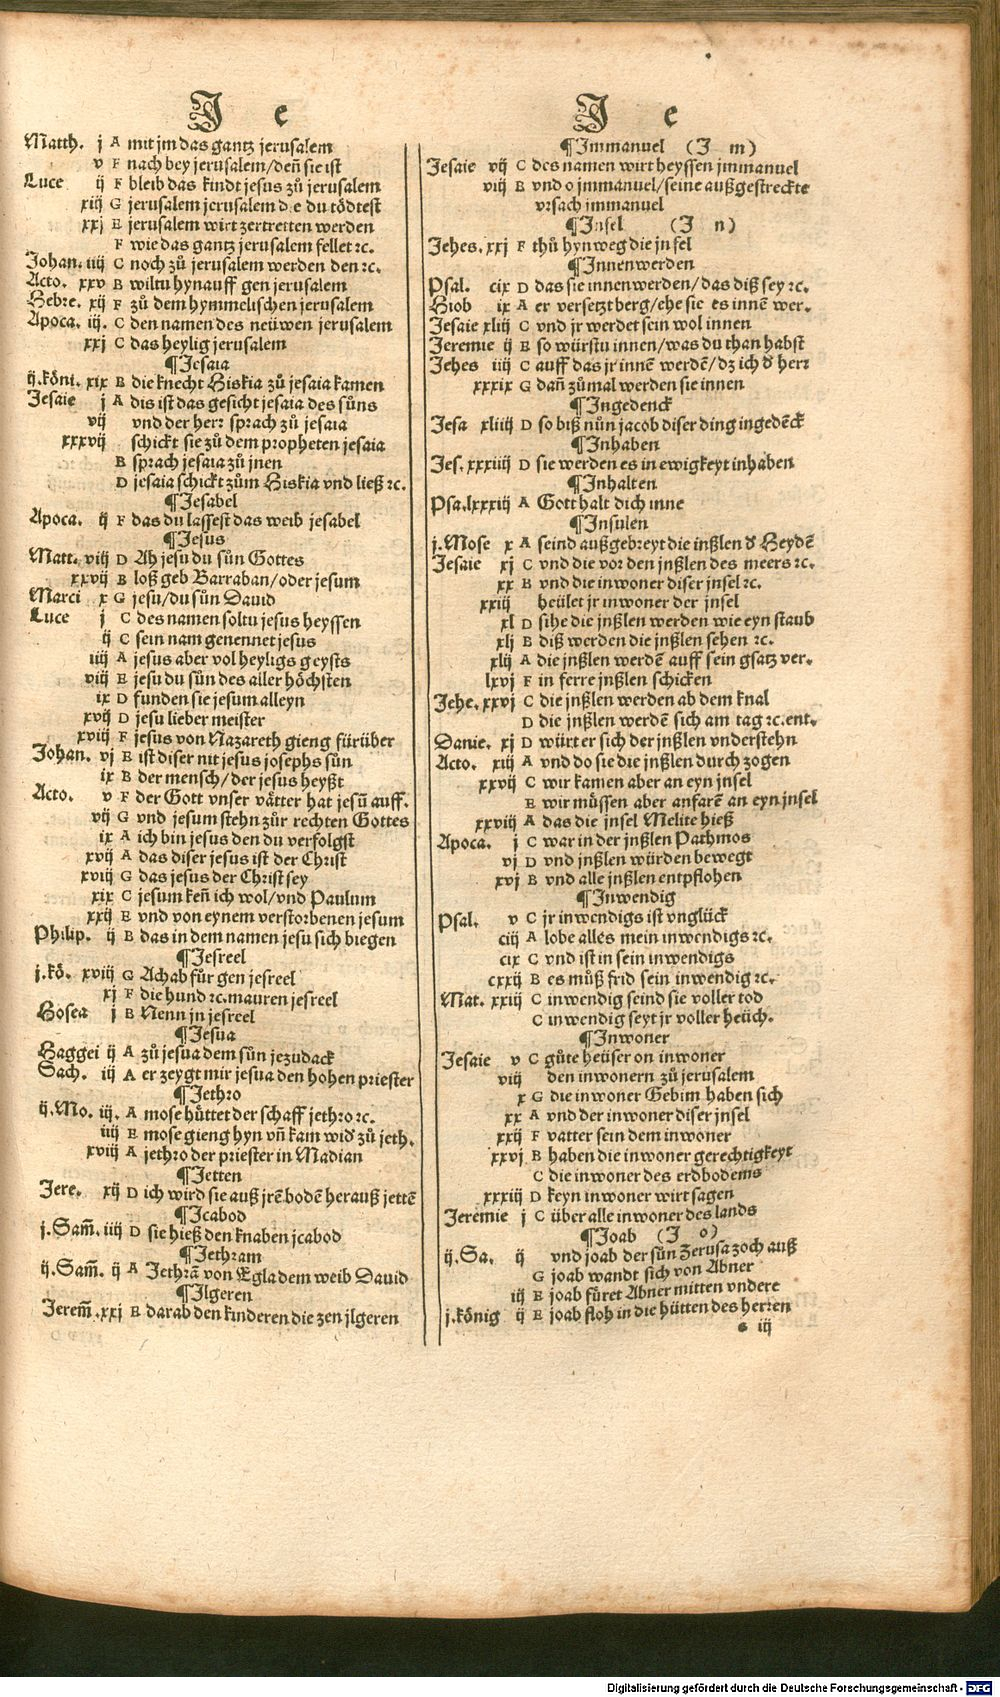 J e
Matth. j A mit jm das gantz jerusalem
v F nach bey jerusalem/deñ sie ist
Luce ij F bleib das kindt jesus zů jerusalem
xiij G jerusalem jerusalem d e du tödtest
xxj E jerusalem wirt zertretten werden
F wie das gantz jerusalem fellet ꝛc.
Johan. iiij C noch zů jerusalem werden den ꝛc.
Acto. xxv B wiltu hynauff gen jerusalem
Hebre. xij F zů dem hymmelischen jerusalem
Apoca. iij. C den namen des neüwen jerusalem
xxj C das heylig jerusalem
¶Jesaia
ij.köni. xix B die knecht Hiskia zů jesaia kamen
Jesaie j A dis ist das gesicht jesaia des sůns
vij vnd der herr sprach zů jesaia
xxxvij schickt sie zů dem propheten jesaia
B sprach jesaia zů jnen
D jesaia schickt zům Hiskia vnd ließ ꝛc.
¶Jesabel
Apoca. ij F das du lassest das weib jesabel
¶Jesus
Matt. viij D Ah jesu du sůn Gottes
xxvij B loß geb Barraban/oder jesum
Marci x G jesu/du sůn David
Luce j C des namen soltu jesus heyssen
ij C sein nam genennet jesus
iiij A jesus aber vol heyligs geysts
viij E jesu du sůn des aller höchsten
ix D funden sie jesum alleyn
xvij D jesu lieber meister
xviij F jesus von Nazareth gieng fürüber
Johan. vj E ist diser nit jesus josephs sůn
ix B der mensch/der jesus heyßt
Acto. v F der Gott vnser vätter hat jesũ auff.
vij G vnd jesum stehn zůr rechten Gottes
ix A ich bin jesus den du verfolgst
xvij A das diser jesus ist der Christ
xviij G das jesus der Christ sey
xix C jesum keñ ich wol/vnd Paulum
xxij E vnd von eynem verstorbenen jesum
Philip. ij B das in dem namen jesu sich biegen
¶Jesreel
j.kö. xviij G Achab fůr gen jesreel
xj F die hund ꝛc. mauren jesreel
Hosea j B Nenn jn jesreel
¶Jesua
Haggei ij A zů jesua dem sůn jezudack
Sach. iij A er zeygt mir jesua den hohen priester
¶Jethro
ij.Mo. iij. A mose hůttet der schaff jethro ꝛc.
iiij E mose gieng hyn vñ kam wid' zů jeth.
xviij A jethro der priester in Madian
¶Jetten
Jere. xij D ich wird sie auß jrẽ bodẽ herauß jettẽ
¶Jcabod
j.Sam̃. iiij D sie hieß den knaben jcabod
¶Jethram
ij.Sam̃. ij A Jethrã von Egla dem weib David
¶Jlgeren
Jerem̃. xxj B darab den kinderen die zen jlgeren
J e
¶Jmmanuel (J m)
Jesaie vij C des namen wirt heyssen jmmanuel
viij B vnd o jmmanuel/seine außgestreckte
vrsach jmmanuel
¶Jnsel (J n)
Jehes. xxj F thů hynweg die jnsel
¶Jnnenwerden
Psal. cix D das sie innenwerden/das diß sey ꝛc.
Hiob ix A er versetzt berg/ehe sie es innẽ wer.
Jesaie xliij C vnd jr werdet sein wol innen
Jeremie ij B so würstu innen/was du than habst
Jehes iiij C auff das jr innẽ werdẽ/dz ich d' herr
xxxix G dañ zůmal werden sie innen
¶Jngedenck
Jesa xliiij D so biß nůn jacob diser ding ingedẽck
¶Jnhaben
Jes. xxxiiij D sie werden es in ewigkeyt inhaben
¶Jnhalten
Psa.lxxxiij A Gott halt dich inne
¶Jnsulen
j.Mose x A seind außgebreyt die inßlen d' Heydẽ
Jesaie xj C vnd die vor den jnßlen des meers ꝛc.
xx B vnd die inwoner diser jnsel ꝛc.
xxiij heület jr inwoner der jnsel
xl D sihe die jnßlen werden wie eyn staub
xlj B diß werden die jnßlen sehen ꝛc.
xlij A die jnßlen werdẽ auff sein gsatz ver.
lxvj F in ferre jnßlen schicken
Jehe. xxvj C die jnßlen werden ab dem knal
D die jnßlen werdẽ sich am tag ꝛc. ent.
Danie. xj D würt er sich der jnßlen vnderstehn
Acto. xiij A vnd do sie die jnßlen durch zogen
xxvij C wir kamen aber an eyn jnsel
E wir müssen aber anfarẽ an eyn jnsel
xxviij A das die jnsel Melite hieß
Apoca. j C war in der jnßlen Pathmos
vj D vnd jnßlen würden bewegt
xvj B vnd alle jnßlen entpflohen
¶Jnwendig
Psal. v C jr inwendigs ist vnglück
ciij A lobe alles mein inwendigs ꝛc.
cix C vnd ist in sein inwendigs
cxxij B es můß frid sein inwendig ꝛc.
Mat. xxiij C inwendig seind sie voller tod
C inwendig seyt jr voller heüch.
¶Jnwoner
Jesaie v C gůte heüser on inwoner
viij den inwonern zů jerusalem
x G die inwoner Gebim haben sich
xx A vnd der inwoner diser jnsel
xxij F vatter sein dem inwoner
xxvj B haben die inwoner gerechtigkeyt
C die inwoner des erdbodems
xxxiij D keyn inwoner wirt sagen
Jeremie j C über alle inwoner des lands
¶Joab (J o)
ij.Sa. ij vnd joab der sůn Zerusa zoch auß
G joab wandt sich von Abner
iij E joab fůret Abner mitten vndere
j.könig ij E joab floh in die hütten des herren
e iij
Digitalisierung gefördert durch die Deutsche Forschungsgemeinschaft - DFG